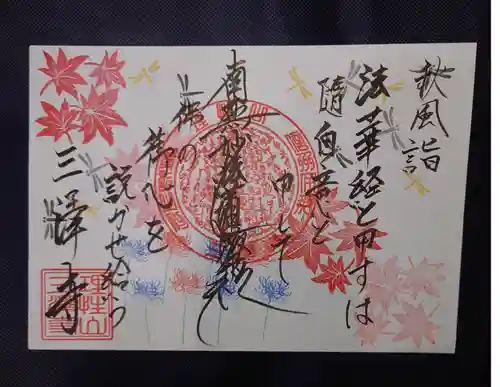 秋風
法華経と申すは
隨自意と
申して
南無妙法蓮華経
仏の
御心を
説かせ給う
三澤寺